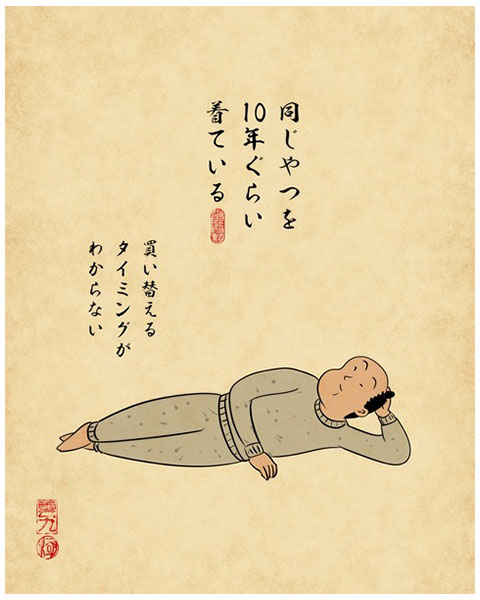 同じやつを
10年ぐらい
着ている
買い替える
タイミングが
わからない